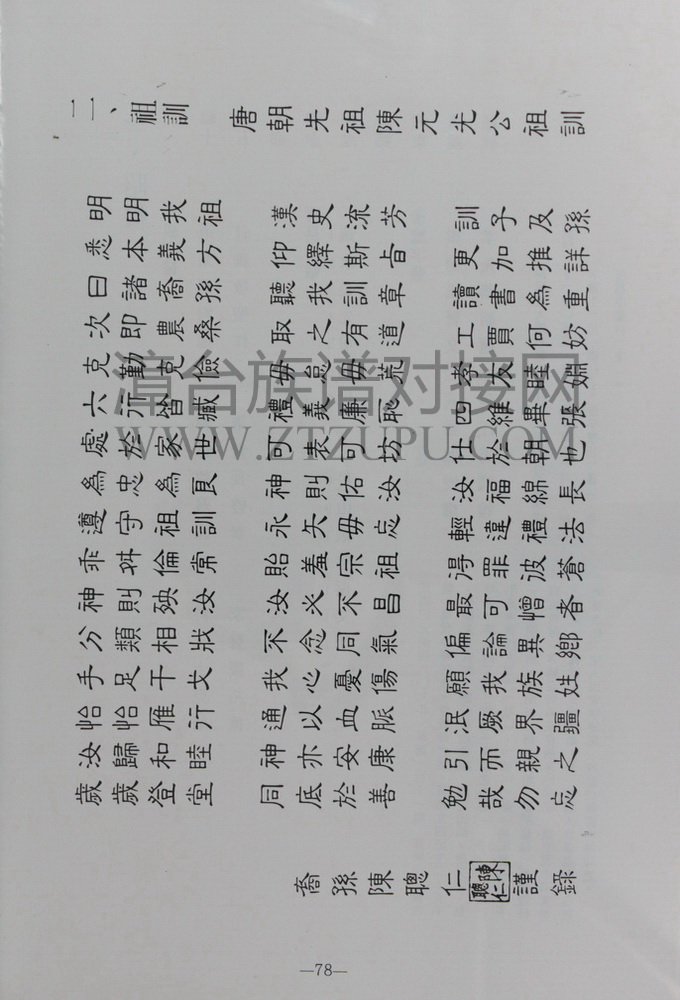 二、祖訓 唐朝先祖陳元光公祖訓
明明我祖 漢史流芳 訓子及孫
悉本義方 仰繹斯旨 更加推詳
曰諸裔孫 聽我訓章 讀書為重
次即農桑 取之有道 工賈何妨
克勤克儉 毋怠毋荒 孝友睦婣
六行皆臧 禮義廉恥 四維畢張
處於家世 可表可坊 仕於朝也
為忠為良 神則佑汝 汝福綿長
遵守祖訓 永矢毋忘 輕違禮法
乖舛倫常 貽羞宗祖 得罪彼蒼
神則殃汝 汝必不昌 最可憎者
分類相戕 不念同氣 偏論異鄉
手足干戈 我心憂傷 願我族姓
怡怡雁行 通以血脈 泯厥界疆
汝歸和睦 神亦安康 引而親之
歲歲登堂 同底於善 勉哉勿忘
裔孫陳聰仁 陳聰仁 謹錄
—78—
漳台族谱对接网
WWW.ZTZUPU.COM